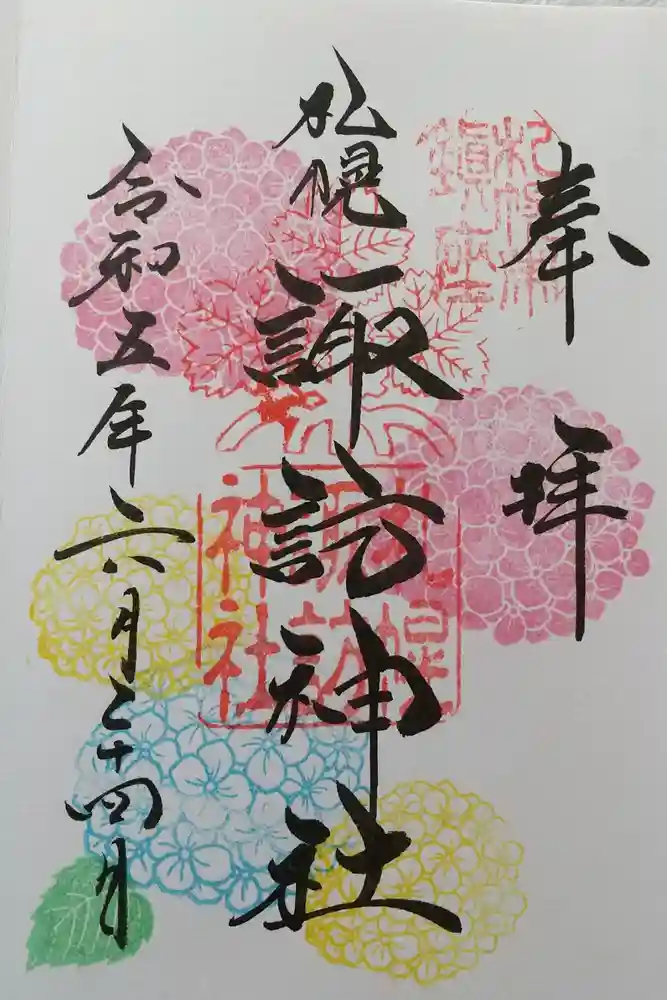 奉拝
札幌諏訪神社
令和五年六月二十四日
札幌諏訪神社